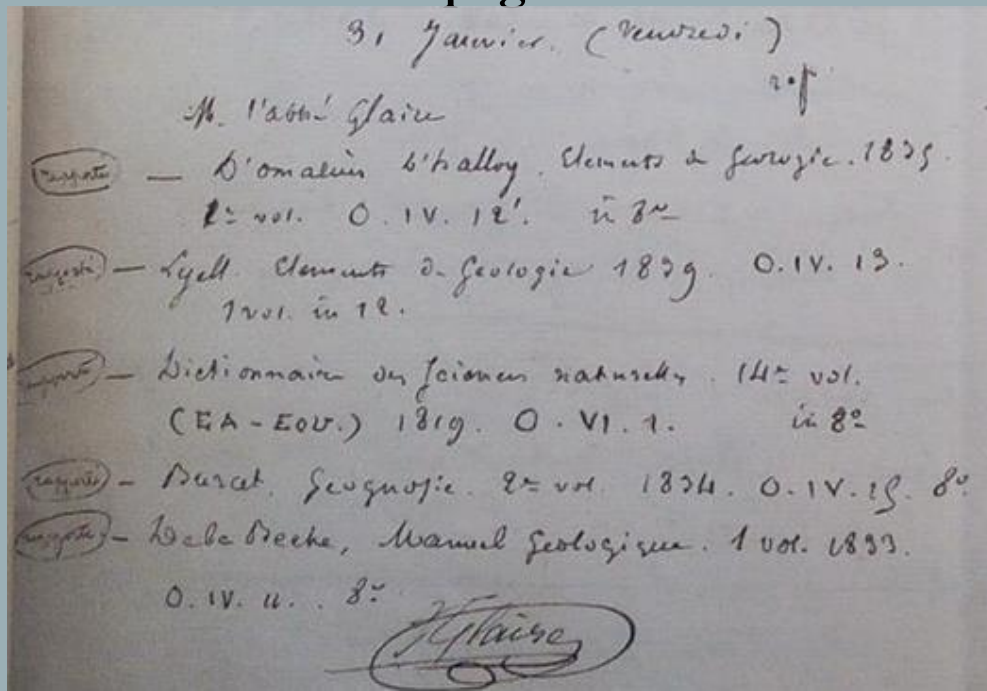 31 Janvier. (Vendredi)
M. l'abbé Glaire
rapporté — D'omalius d'halloy. Elements de Geologie. 1835.
1er vol. O. IV. 12'. in 8°
rapporté — Lyell. Elements de Geologie 1839. O. IV. 13.
1 vol. in 12.
rapporté — Dictionnaire des Sciences naturelles. 14e vol.
(EA - EOU.) 1819. O. VI. 1. in 8°
rapporté — Burat. Geognosie. 2e vol. 1834. O. IV. 15. 8°
rapporté — De la Beche, Manuel Geologique. 1 vol. 1833.
O. IV. 11. 8°
Glaire